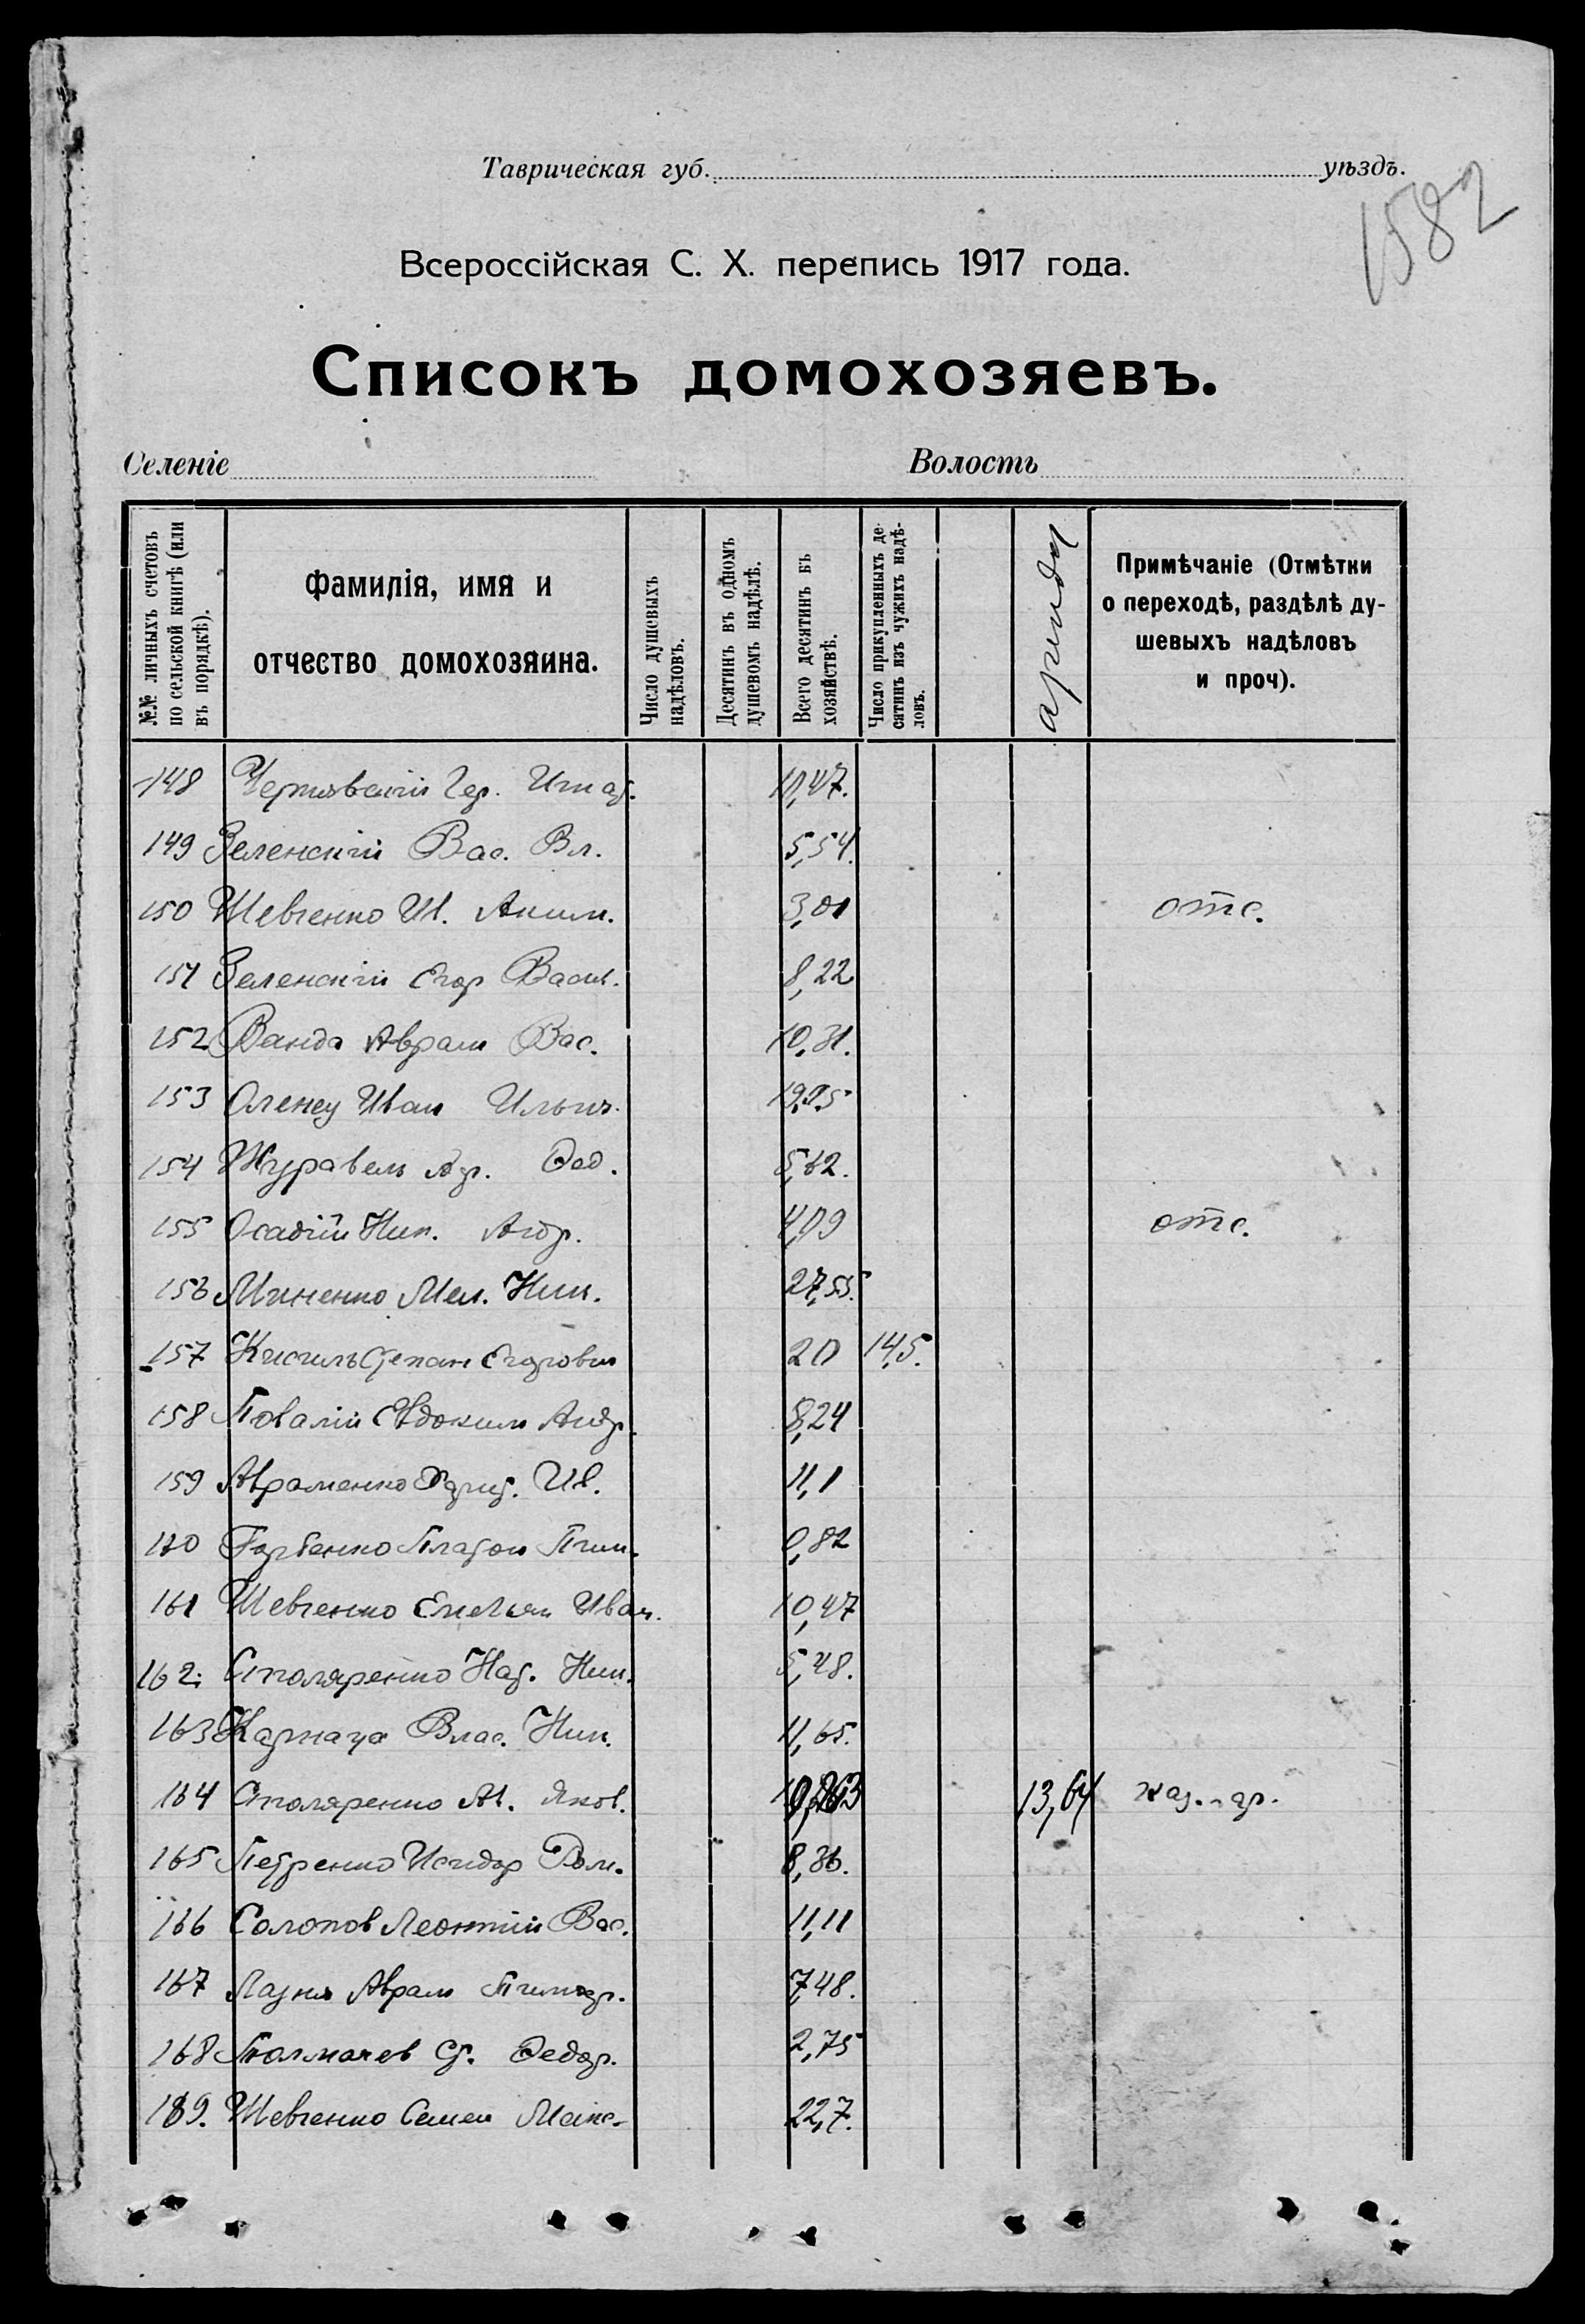 Таврическая губ. уѣздъ.
1582
Всероссійская С. Х. перепись 1917 года.
Списокъ домохозяевъ.
Селеніе Волость
№№ личныхъ счетовъ по сельской книгѣ (или въ порядкѣ).
Фамилія, имя и отчество домохозяина.
Число душевыхъ надѣловъ.
Десятинъ въ одномъ душевомъ надѣлѣ.
Всего десятинъ въ хозяйствѣ.
Число прикупленныхъ десятинъ изъ чужихъ надѣловъ.
аренды
Примѣчаніе (Отмѣтки о переходѣ, раздѣлѣ душевыхъ надѣловъ и проч).
148 Чернявскій Гер. 11,47.
149 Зеленскій Вас. Вл. 5,54.
150 Шевченко Ив. Аким. 3,01 отс.
151 Зеленскій Егор Васил. 8,22
152 Ванда Аврам Вас. 10,31.
153 Оленец Иван Ильич. 19,05
154 Журавель Фед. 5,62.
155 Осадчій Ник. Андр. 4,09 отс.
156 Миненко Мел. Ник. 27,55.
157 Кисиль Степан Егорович 20 14,5.
158 Повалій Евдоким Андр. 8,24
159 Авраменко Харит. Ив. 11,1
160 Горбенко Платон Тим. 0,82
161 Шевченко Емельян Иван. 10,47
162. Столяренко Наз. Ник. 5,48.
163 Карнауха Влас. Ник. 11,65.
164 Столяренко Ал. Яков. 13,64 каз. ар.
165 Петренко Исидор Ром. 8,36.
166 Солопов Леонтій Вас. 11,11
167 Лазня Аврам Тимофр. 7,48.
168 Толмачев Ст. Федор. 2,75
169. Шевченко Семен Макс. 22,7.